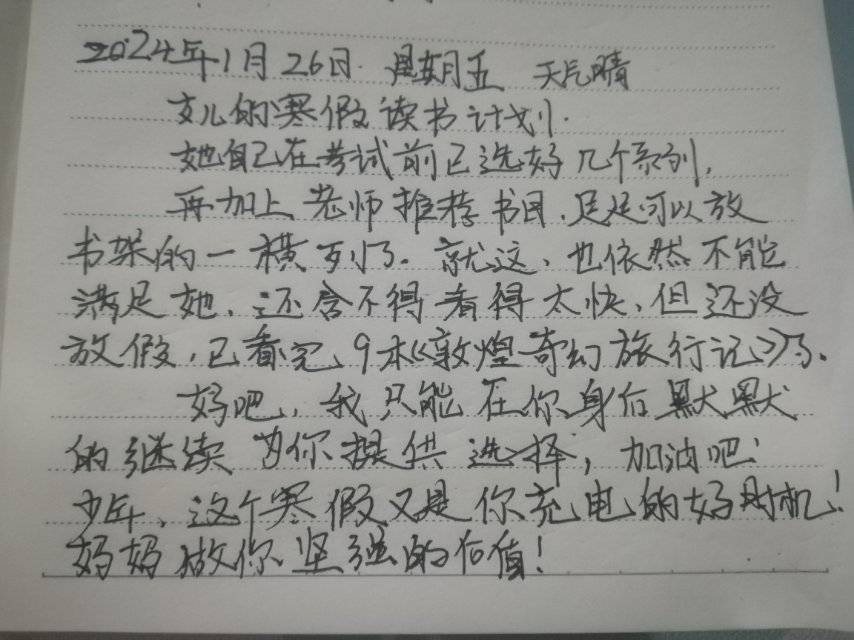 2024年1月26日. 星期五 天气晴
女儿的寒假读书计划.
她自己在考试前已选好几个系列,
再加上老师推荐书目,足足可以放
书架的一横列了.就这、也依然不能
满足她、还舍不得看得太快,但还没
放假,已看完9本《敦煌奇幻旅行记》了.
好吧,我只能在你身后默默
的继续为你提供选择,加油吧!
少年、这个寒假又是你充电的好时机!
妈妈做你坚强的后值!